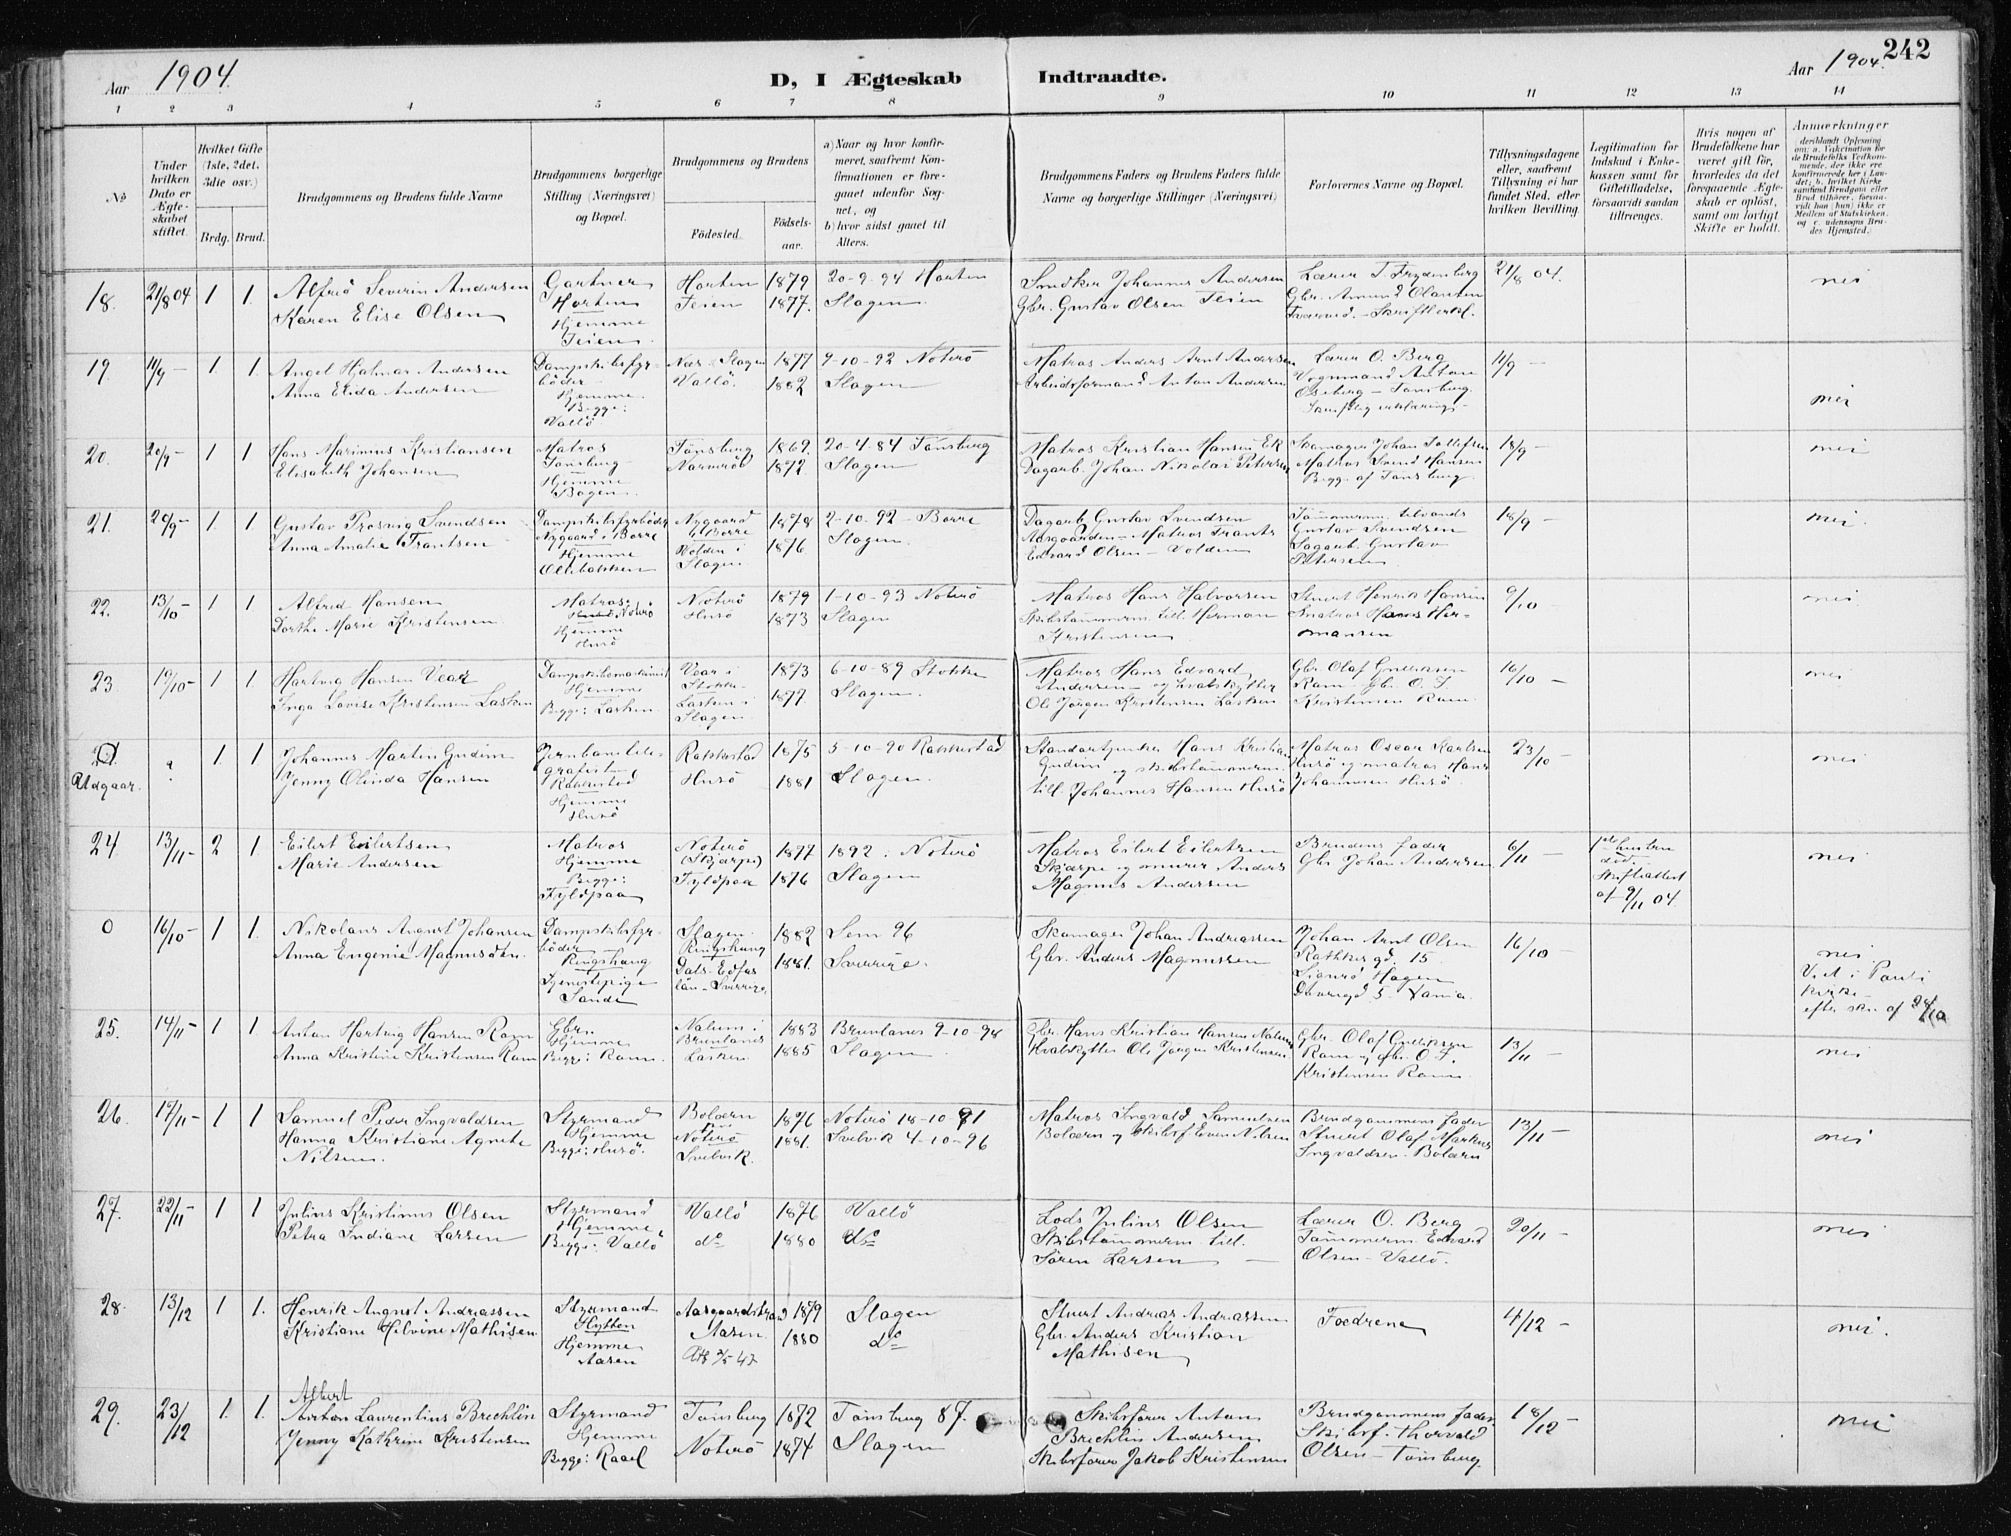 242
Aar 1904.
D, I Ægteskab Indtraadte.
Aar 1904.
1 2 3 4 5 6 7 8 9 10 11 12 13 14
No
Under hvilken Dato er Ægteskabet stiftet.
Hvilket Gifte (1ste, 2det, 3die osv.)
Brdg. Brud.
Brudgommens og Brudens fulde Navne
Brudgommens borgerlige Stilling (Næringsvei) og Bopæl.
Brudgommens og Brudens
Fødested.
Fødselsaar.
a) Naar og hvor konfirmeret, saafremt Konfirmationen er foregaaet udenfor Sognet, og
b) hvor sidst gaaet til Alters.
Brudgommens Faders og Brudens Faders fulde Navne og borgerlige Stillinger (Næringsvei)
Forlovernes Navne og Bopæl.
Tillysningsdagene eller, saafremt Tillysning ei har fundet Sted, efter hvilken Bevilling.
Legitimation for Indskud i Enkekassen samt for Giftetilladelse, forsaavidt saadan tiltrænges.
Hvis nogen af Brudefolkene har været gift før, hvorledes da det foregaaende Ægteskab er opløst, samt om lovligt Skifte er holdt.
Anmærkninger (deriblandt Oplysning om: a. Vakcination for de Brudefolks Vedkommende, der ikke ere konfirmerede her i Landet; b. hvilket Kirkesamfund Brudgom eller Brud tilhører, forsaavidt han (hun) ikke er Medlem af Statskirken, og c. udensogns Brudes Hjemsted.)
18. 21/8 04 1 1.
Alfred Severin Andersen
Karen Elise Olsen
Gartner
Horten
Hjemme
Teien
Horten 1879
Teien 1877.
20-9-94 Horten
Slagen.
Snedker Johannes Andersen
Gbr. Gustav Olsen Teien
Lærer T. Frydenberg
Gbr. Amund Olausen
21/8 04.
nei
19 11/9 - 1 1.
Angel Hjalmar Andersen
Anna Elida Andersen
Dampskibsfyrbøder
Hjemme.
Begge:
Vallö
Nær Slagen 1877
Vallö. 1882
9-10-92 Noterö
Slagen
Matros Anders Arnt Andersen
Arbeidsformand Anton Andersen
Lærer O. Berg
Vognmand Anton
Oseberg - Tønsberg.
11/9 -
nei
20. 20/9 - 1 1
Hans Marinius Kristiansen
Elisabeth Johansen
Matros
Tønsberg
Hjemme
Bogen
Tønsberg 1869.
Narverød 1872.
20-4-84 Tønsberg
Slagen
Matros Kristian Hansen Ek
Dagarb. Johan Nikolai Petersen
Skomager Johan Tollefsen
Matros Svend Hansen
Begge af Tønsberg.
18/9 -
nei
21. 20/9 - 1. 1.
Gustav Prosvig Svendsen
Anna Amalie Frantsen
Dampskibsfyrbøder
Nygaard i Borre
Hjemme
Nygaard i Borre 1878
Volden i Slagen 1876
2-10-92 - Borre
Slagen.
Dagarb. Gustav Svendsen
Aasgaarden - Matros Frants
Edvard Olsen - Volden
Gustav Svendsen
Dagarb. Gustav
Petersen
18/9 -
nei.
22. 13/10 - 1 1.
Alfred Hansen
Dorthe Marie Kristensen
Matros.
Noterö
Hjemme
Husö
Nöterö 1879
Husö 1873
1-10-93 Noterö
Slagen
Matros Hans Halvorsen
Skibstømmerm. till. Herman
Kristensen
Stuert Henrik Hansen
Matros Hans Hermansen
9/10 -
nei
23. 19/10 - 1 1.
Hartvig Hansen Vear
Inga Lovise Kristensen Lasken
Dampskibsmaskinist
Hjemme
Begge: Lasken.
Vear i Stokke 1873
Lasken i Slagen 1877.
6-10-89 Stokke
Slagen.
Matros Hans Edvard
Andersen - og hvalskytter
Ole Jörgen Kristensen Lasken
Gbr. Olaf Gulliksen
Ram - gbr. O. J.
Kristensen Ram.
16/10 -
nei
Udgaar. 1. 1
Johannes Martin Gudim
Jenny Olinda Hansen
Jernbanetelegrafist
Rakkestad
Hjemme
Husö
Rakkestad 1875
Husö 1881
5-10-90 Rakkestad
Slagen.
Hans Kristian
Gudim og skibstømmerm.
till. Johannes Hansen Husö
Matros Oscar Karlsen
Husö og matros Hans
Johannesen Husö
23/10 -
nei
24. 13/11 - 2 1.
Eilert Eilertsen
Marie Andersen
Matros
Hjemme
Begge:
Fyldpaa
Noterö (Skjærpe) 1877
Fyldpaa 1876
1892. Noterö
Slagen
Matros Eilert Eilertsen
Skjærpe og murer Anders
Magnus Andersen
Brudens fader
Gbr Johan Andersen
6/11 -
1ste hustru
död.
Skifteattest
af 9/11 04.
nei
0 16/10 - 1 1.
Nikolaus August Johansen
Anna Eugenie Magnusdtr.
Dampskibsfyrbøder
Ringshaug
Tjenestepige
Sande
Slagen
Ringshaug 1882
Dals-Edslän - Sverrige. 1881.
Sem 96
Sverrige.
Skomager Johan Andreassen
Gbr. Anders Magnussen
Johan Arnt Olsen
Rathkes gd. 15.
Sigurd Hagen
16/10 -
nei.
Viet i Pauls kirke
efter skr. af 24/10
25. 14/11 - 1 1.
Anton Hartvig Hansen Ram
Anna Kristine Kristensen Ram
Gbr.
Hjemme
Begge: Ram.
Nalum i Brunlanes 1883
Lasken. 1885
Brunlanes 9-10-98
Slagen
Gbr. Hans Kristian Hansen Nalum
Hvalskytter Ole Jörgen Kristensen
Gbr. Olaf Gulliksen
Ram og gbr. O. J.
Kristensen Ram
13/11 -
nei
26. 17/11 - 1 1
Samuel Peder Ingvaldsen
Hanna Kristiane Agnete
Nilsen.
Styrmand
Hjemme
Begge: Husö.
Bolærn
Noterö 1876
Svelvik. 1881.
Noterö 18-10 91
Svelvik 4-10-96
Matros Ingvald Samuelsen
Bolærn og skibsf. Even Nilsen
Brudgommens fader
Stuert Olaf Markus
Ingvaldsen - Bolærn
13/11 -
nei
27. 22/11 - 1 1
Julius Kristinus Olsen
Petra Indiane Larsen
Styrmand
Hjemme
Begge: Vallö
Vallö 1876
do 1880
Vallö
do
Lods Julius Olsen
Skibstømmerm. till.
Sören Larsen
Lærer O. Berg
Tømmerm. Edvard
Olsen - Vallö.
20/11 -
nei
28. 13/12 1 1.
Henrik August Andreassen
Kristiane Helvine Mathisen
Styrmand
Hytten
Hjemme
Aasen
Aasgaardstrand 1879
Aasen 1880
Slagen
do
Stuert Andreas Andreassen
Gbr. Anders Kristian
Mathisen
Fædrene
4/12 -
nei.
29. 23/12 1. 1.
Albert
Anton Laurentius Brechlin
Jenny Kathrine Kristensen
Styrmand
Hjemme
Begge: Raael
Tønsberg 1872
Noterö 1874
Tønsberg 87.
Slagen
Skibsfører Anton
Brechlin Andersen
Skibsfører Jakob Kristensen
Brudgommens fader.
Skibsf. Thorvald
Olsen - Tønsberg.
18/12 -
nei